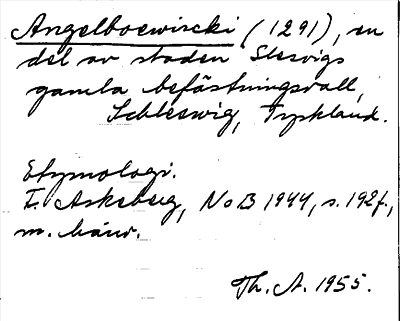 Angelboewircki (1291), en
del av staden Slesvigs
gamla befästningsvall,
Schleswig, Tyskland.
Etymologi.
F. Askeberg, NoB 1944, s. 192f.,
m. hänv.
Th. A. 1955.